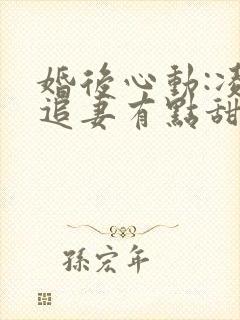 婚後心動:凌
追妻有點甜
孫宏年